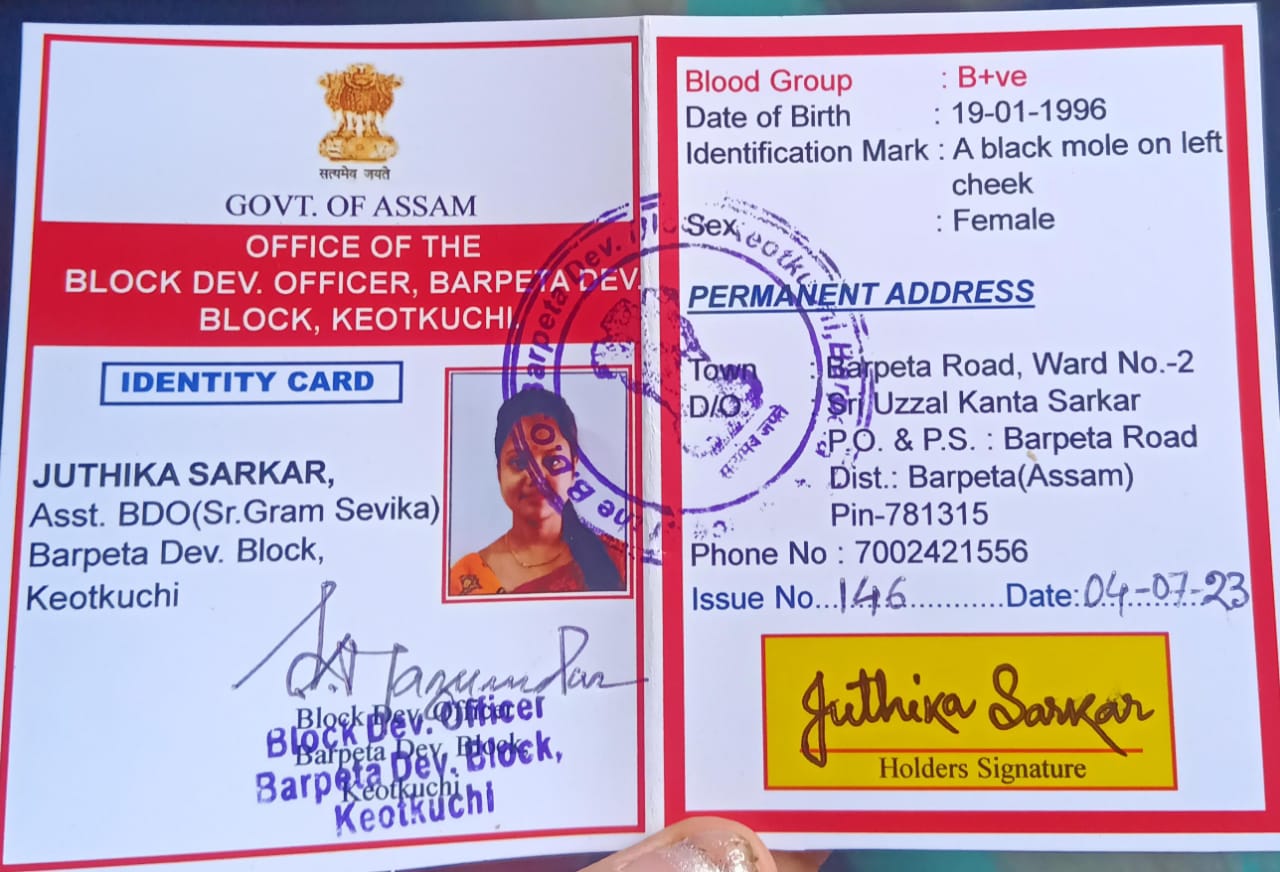 सत्यमेव जयते
GOVT. OF ASSAM
OFFICE OF THE
BLOCK DEV. OFFICER, BARPETA DEV.
BLOCK, KEOTKUCHI
IDENTITY CARD
JUTHIKA SARKAR,
Asst. BDO(Sr.Gram Sevika)
Barpeta Dev. Block,
Keotkuchi
Block Dev. Officer
Barpeta Dev. Block,
Keotkuchi
Block Dev. Officer
Barpeta Dev. Block,
Keotkuchi
Blood Group : B+ve
Date of Birth : 19-01-1996
Identification Mark : A black mole on left
cheek
Sex : Female
PERMANENT ADDRESS
Town : Barpeta Road, Ward No.-2
D/O : Sri Uzzal Kanta Sarkar
P.O. & P.S. : Barpeta Road
Dist.: Barpeta(Assam)
Pin-781315
Phone No : 7002421556
Issue No...146............Date:04-07-23
Juthika Sarkar
Holders Signature
सत्यमेव जयते